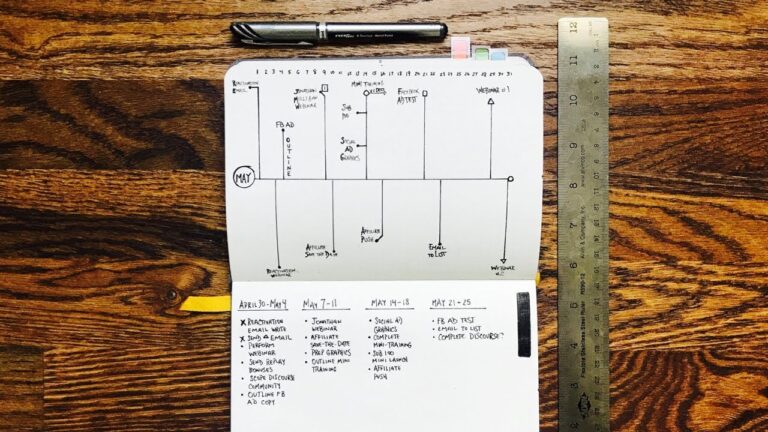 1 2 3 4 5 6 7 8 9 10 11 12 13 14 15 16 17 18 19 20 21 22 23 24 25 26 27 28 29 30 31
REACTIVATION
EMAIL
JONATHAN
WEBINAR
MINI TRAINING
VIDEO
FACEBOOK
AD TEST
WEBINAR #1
SUB
FB AD
OUTLINE
SOCIAL
AD
GRAPHICS
MAY
AFFILIATE
SAVE THE DATE
AFFILIATE
PUSH
EMAIL
TO LIST
REACTIVATION
WEBINAR
WEBINAR
APRIL 30-MAY 4
X REACTIVATION
EMAIL WRITE
X SEND EMAIL
• PERFORM
WEBINAR
• SEND REPLAY
BONUSES
• SCOPE DISCOURSE
COMMUNITY
• OUTLINE FB
AD COPY
MAY 7-11
• JONATHAN
WEBINAR
• AFFILIATE
SAVE-THE-DATE
• PREP GRAPHICS
• OUTLINE MINI
TRAINING
MAY 14-18
• SOCIAL AD
GRAPHICS
• COMPLETE
MINI-TRAINING
• SUB 100
MINI LAUNCH
• AFFILIATE
PUSH
MAY 21-25
• FB AD TEST
• EMAIL TO LIST
• COMPLETE DISCOURSE?
12
11
10
9
8
7
6
5
4
3
2